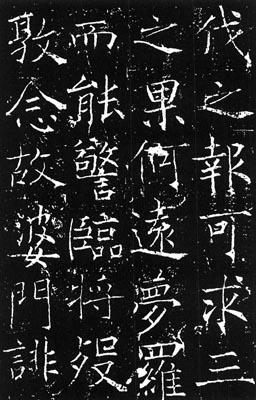 伐之報可求三
之果何遠夢羅
而能警臨將歿
敦念故婆門誹